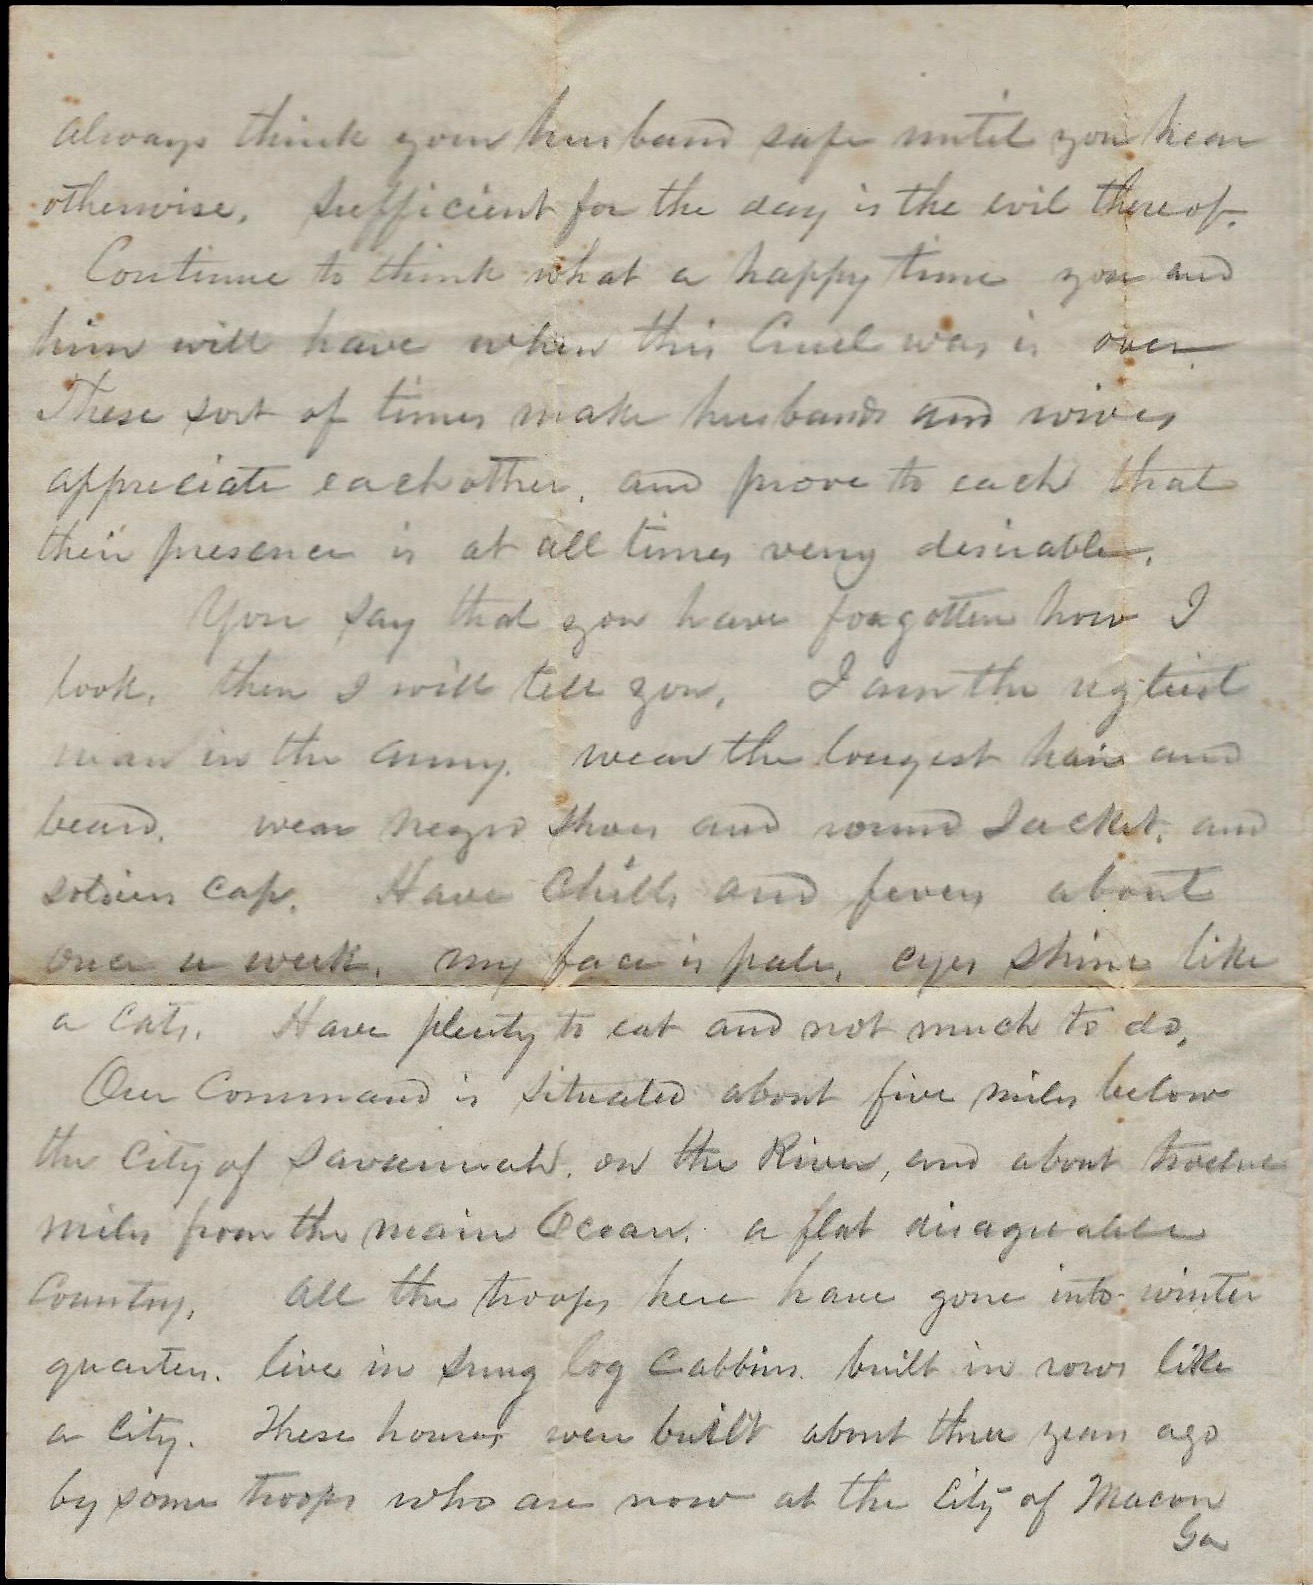 always think your husband safe until you hear
otherwise. Sufficient for the day is the evil thereof.
Continue to think what a happy time you and
him will have when this Cruel war is over.
These sort of times make husbands and wives
appreciate each other, and prove to each that
their presence is at all times very desirable.
You say that you have forgotten how I
look, then I will tell you, I am the ugliest
man in the army. wear the longest hair and
beard. wear negro shoes and round Jacket, and
soldiers cap. Have Chills and fevers about
once a week, my face is pale, eyes shine like
a Cats. Have plenty to eat and not much to do,
Our Command is situated about five miles below
the City of Savannah, on the River, and about twelve
miles from the main Ocean. a flat disagreable
Country. All the troops here have gone into winter
quarters. live in snug log Cabbins. built in rows like
a City. These houses were built about three years ago
by some troops who are now at the City of Macon
Ga